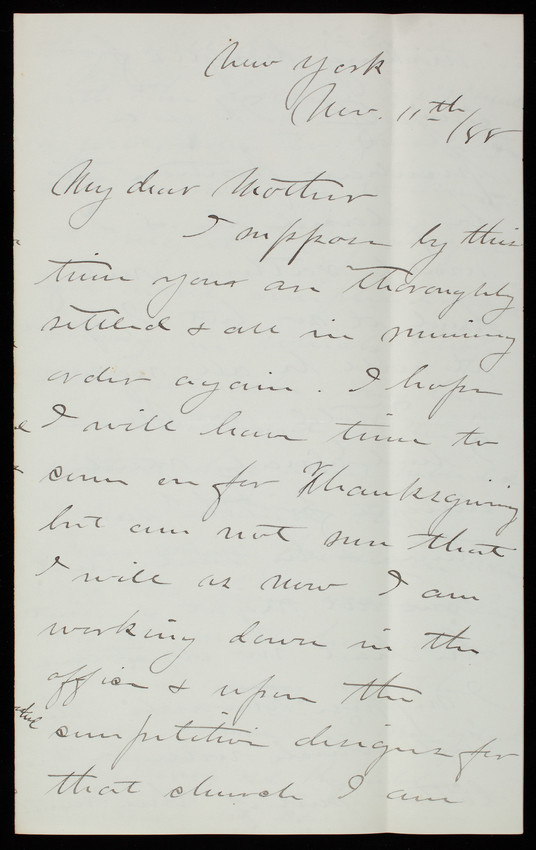 New York
Nov. 11th/88
My dear Mother
I suppose by this
time your are thoroughly
settled & all in running
order again. I hope
I will have time to
come on for Thanksgiving
but am not sure that
I will as now I am
working down in the
office & upon the
competitive designs for
that church I am